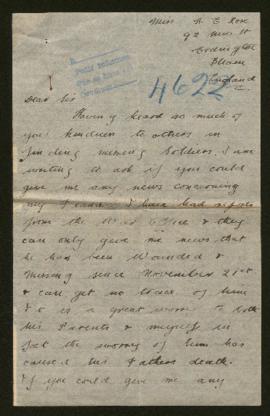 Miss A E Rose
92
England
4622
Dear Sir
Having heard so much of
your kindness to others in
finding missing Soldiers, I am
writing to ask if you could
give me any news concerning
my I have had
from the War Office & they
can only give me news that
he has been Wounded &
Missing since November 21st
& can get no trace of him
& is a great to both
his Parents & myself in
fact the worry of him has
caused his Fathers death.
If you could give me any